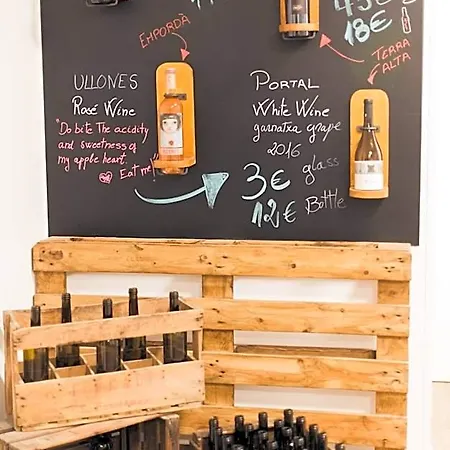 45€
18€
EMPORDÀ
TERRA
ALTA
ULLONES
Rosé Wine
"Do bite The acidity
and sweetness of
my apple heart.
Eat me"
PORTAL
White Wine
garnatxa grape
2016
3€ glass
12€ Bottle